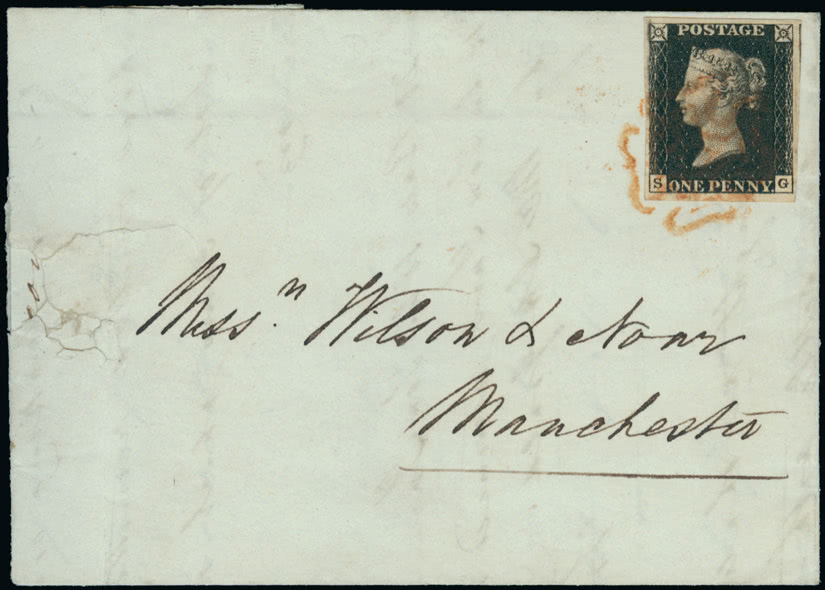 POSTAGE
S ONE PENNY. G
Mess.rs Wilson & Noar
Manchester